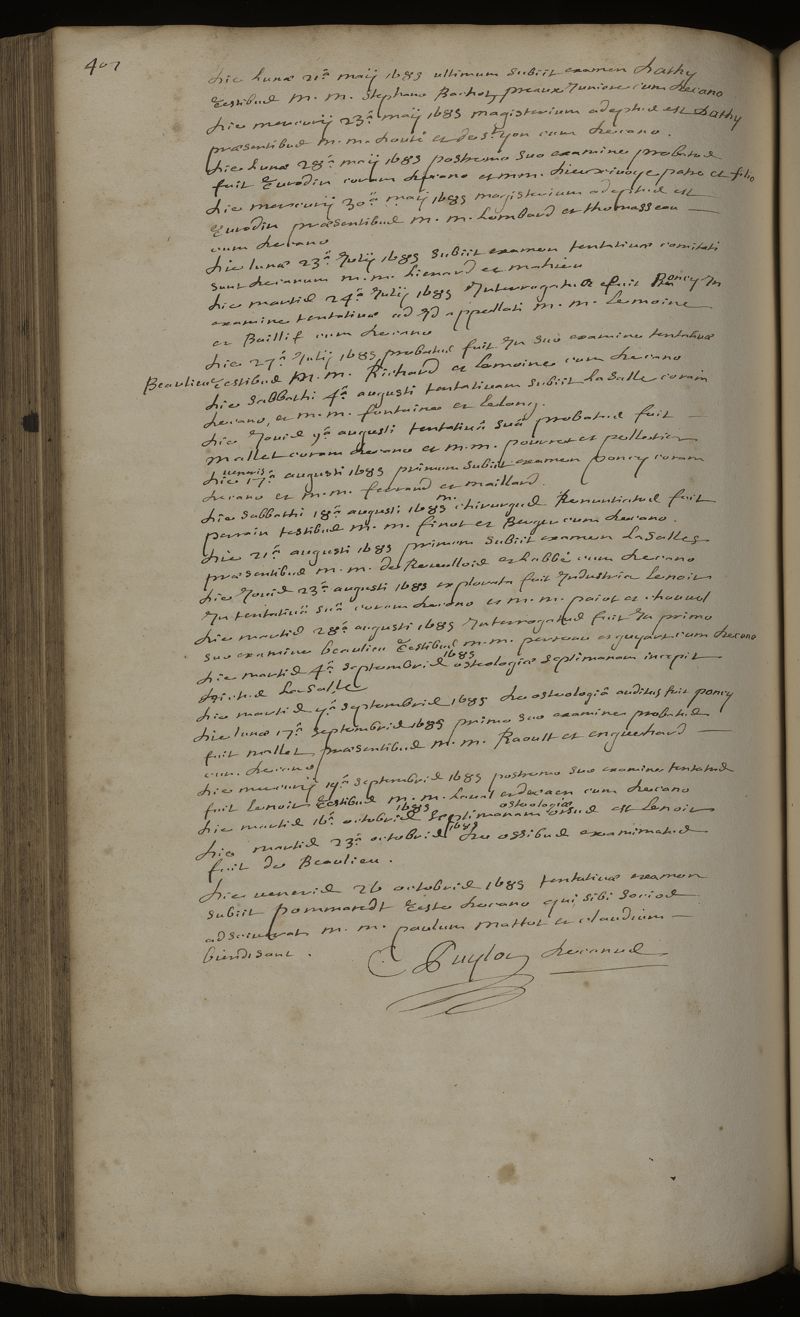 402
die lunæ 21ª maij 1683 ultimum subiit examen Dathy
testibus M. M. Stephano Bachot, preaux Juniore cum decano
die mercurij 23ª maij 1683 magisterium adeptus est Dathy
præsentibus M. M. et de St yon cum decano.
die lunæ 28ª maij 1683 postremo suo examine probatus
fuit Turodin coram decano et m.m. patre et filio
die mercurij 30ª maij 1683 magisterium adeptus est
Turodin præsentibus M. M. Lombard et thomasseau
cum decano
die lunæ 23ª Julij 1683 subiit examen tentativæ comitati
sunt decanum m.m. Lienard et mahieu
die martis 24ª Julij 1683 Interrogatus fuit Poncy In
examine tentativæ ad Id appellati M. M. Lemoine
et Baillif cum decano
die 27ª Julij 1683 probatus fuit In suo examine tentativæ
Beaulieu testibus M. M. Richard et Lemoine cum decano
die sabbathi 4ª augusti tentativam subiit Lasalle coram
decano, et m.m. fontaine et Lelong.
die Jovis 9ª augusti tentativâ suâ probatus fuit
Mallet coram decano et M.M. pourret et pelletier
die veneris 17ª augusti 1683 primum subiit examen poncy coram
decano et M.M. ferrand et maillard.
die sabbathi 18ª augusti 1683 m. chirurgus Renuntiatus fuit
perrin testibus M. M. finot et Berger cum decano.
die 21ª augusti 1683 primum subiit examen Lasalle
præsentibus M. M. de et Labbé cum decano
die Jovis 23ª augusti 1683 explorata fuit Industria Lenoir
In tentativâ suâ coram decano et M.M. et
die martis 28ª augusti 1683 Interrogatus fuit In primo
suo examine beaulieu testibus M.M. perreau et guyart cum decano
die martis 4ª septembris 1683 osteologiæ septimanam incepit
Lasalle
die martis septembris 1683 de osteologiâ auditus fuit poncy
die lunæ 17ª septembris 1683 primo suo examine probatus
fuit mallet, præsentibus M. M. Raoult et enguehard
cum decano
die mercurij 19ª septembris 1683 postremo suo examine tentatus
fuit Lenoir testibus M. M. Laval et decaen cum decano
die martis 16ª octobris 1683 septimanam osteologiæ orsus est Lenoir
die martis 23ª octobris 1683 de ossibus examinatus
fuit de Beaulieu.
die veneris 26 octobris 1683 tentativæ examen
subiit pommaredt teste decano qui sibi socios
adsciverat M. M. paulum Mattot et claudium
biendisant.
C Puylon decanus